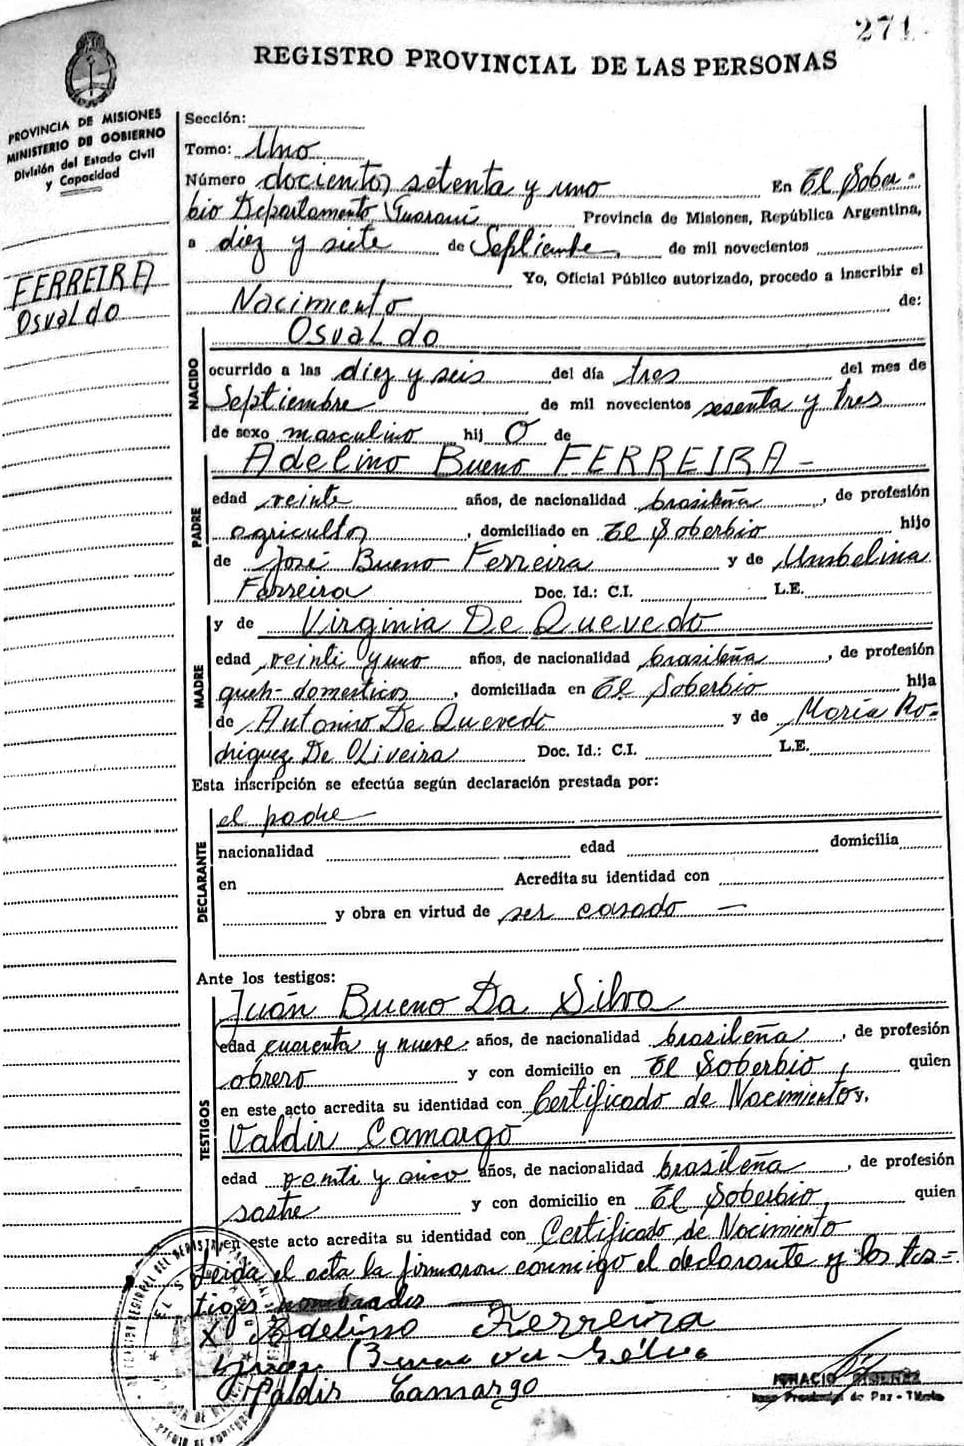 271.
REGISTRO PROVINCIAL DE LAS PERSONAS
PROVINCIA DE MISIONES
MINISTERIO DE GOBIERNO
División del Estado Civil
y Capacidad
FERREIRA
Osvaldo
Sección:
Tomo: Uno
Número docientos setenta y uno En El Sober-
bio Departamento Guaraní Provincia de Misiones, República Argentina,
a diez y siete de Septiembre, de mil novecientos
Yo, Oficial Público autorizado, procedo a inscribir el
Nacimiento de:
NACIDO
Osvaldo
ocurrido a las diez y seis del día tres del mes de
Septiembre de mil novecientos sesenta y tres
de sexo masculino hij o de
PADRE
Adelino Bueno FERREIRA -
edad veinte años, de nacionalidad brasileña, de profesión
agricultor, domiciliado en El Soberbio hijo
de José Bueno Ferreira y de Umbelina
Ferreira Doc. Id.: C.I. L.E.
MADRE
y de Virginia De Quevedo
edad veinti y uno años, de nacionalidad brasileña, de profesión
queh-domesticos, domiciliada en El Soberbio hija
de Antonino De Quevedo y de María Ro-
driguez De Oliveira Doc. Id.: C.I. L.E.
Esta inscripción se efectúa según declaración prestada por:
DECLARANTE
el padre
nacionalidad edad domicilia
en Acredita su identidad con
y obra en virtud de ser casado -
Ante los testigos:
TESTIGOS
Juán Bueno Da Silva
edad cuarenta y nueve años, de nacionalidad brasileña, de profesión
obrero y con domicilio en El Soberbio, quien
en este acto acredita su identidad con Certificado de Nacimiento y,
Valdir Camargo
edad venti y cinco años, de nacionalidad brasileña, de profesión
sastre y con domicilio en El Soberbio, quien
en este acto acredita su identidad con Certificado de Nacimiento
Leida el acta la firmaron conmigo el declarante y los tes=
tigos nombrados
X Adelino Ferreira
Juan Bueno da Silva
Valdir Camargo
IGNACIO GIMENEZ
Juez Provincial de Paz - Titular